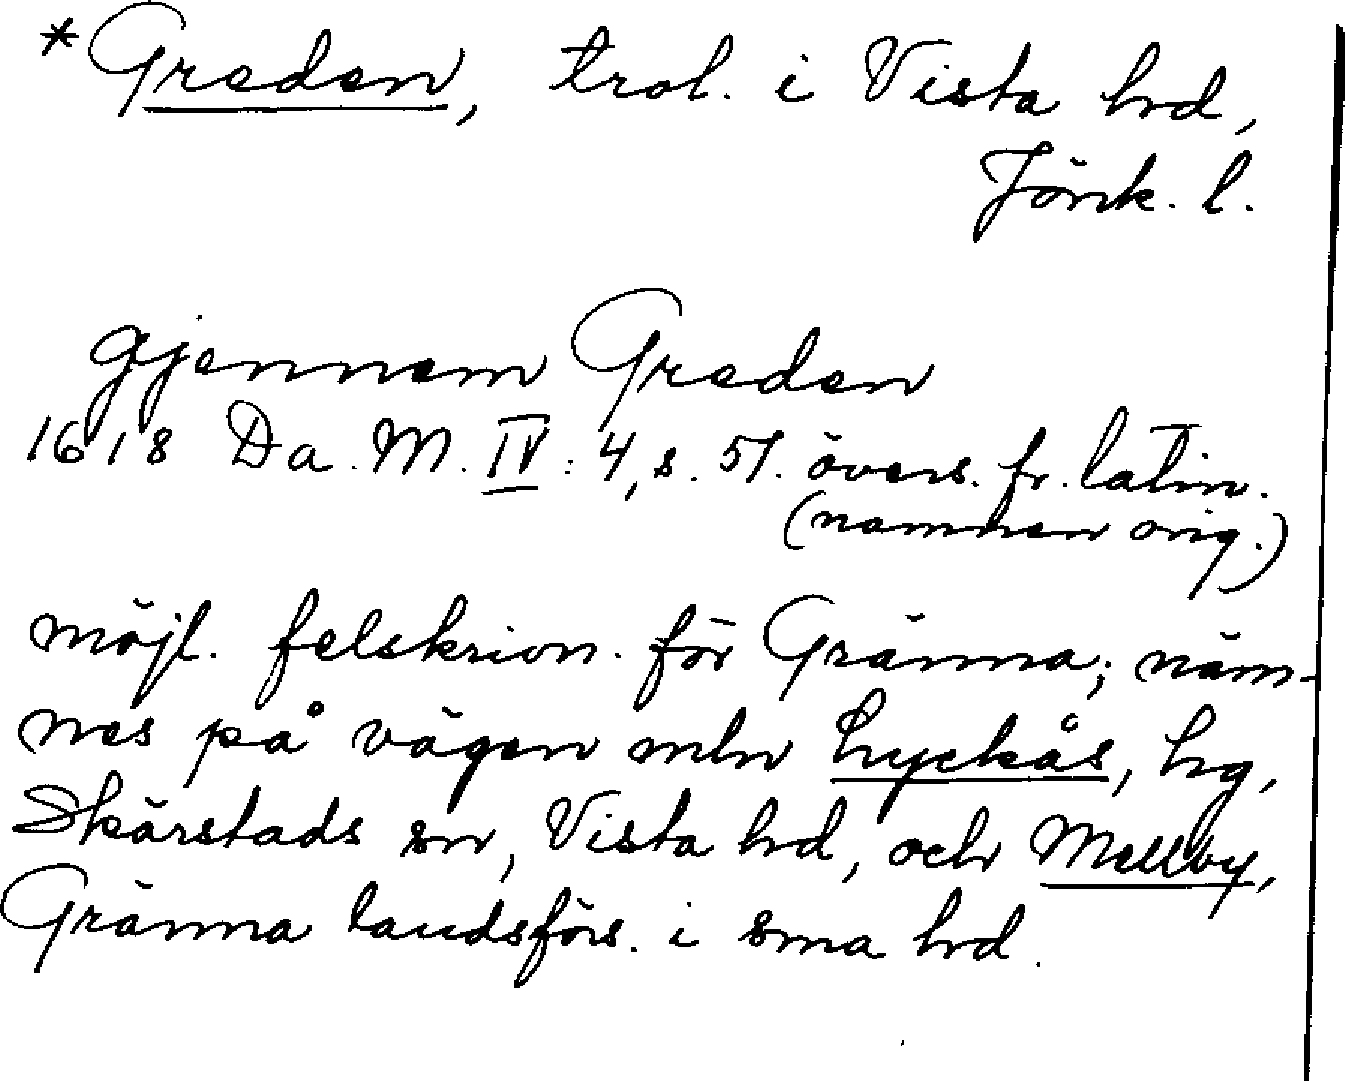 *Greden, trol. i Vista hrd,
Jönk. l.
gjennem Greden
1618 Da. M. IV : 4, s. 51. övers. fr. latin.
(namnen orig.)
möjl. felskrivn. för Gränna; näm-
nes på vägen mln Lyckås, hg,
Skärstads sn, Vista hrd, och Mellby,
Gränna landsförs. i sma hrd.